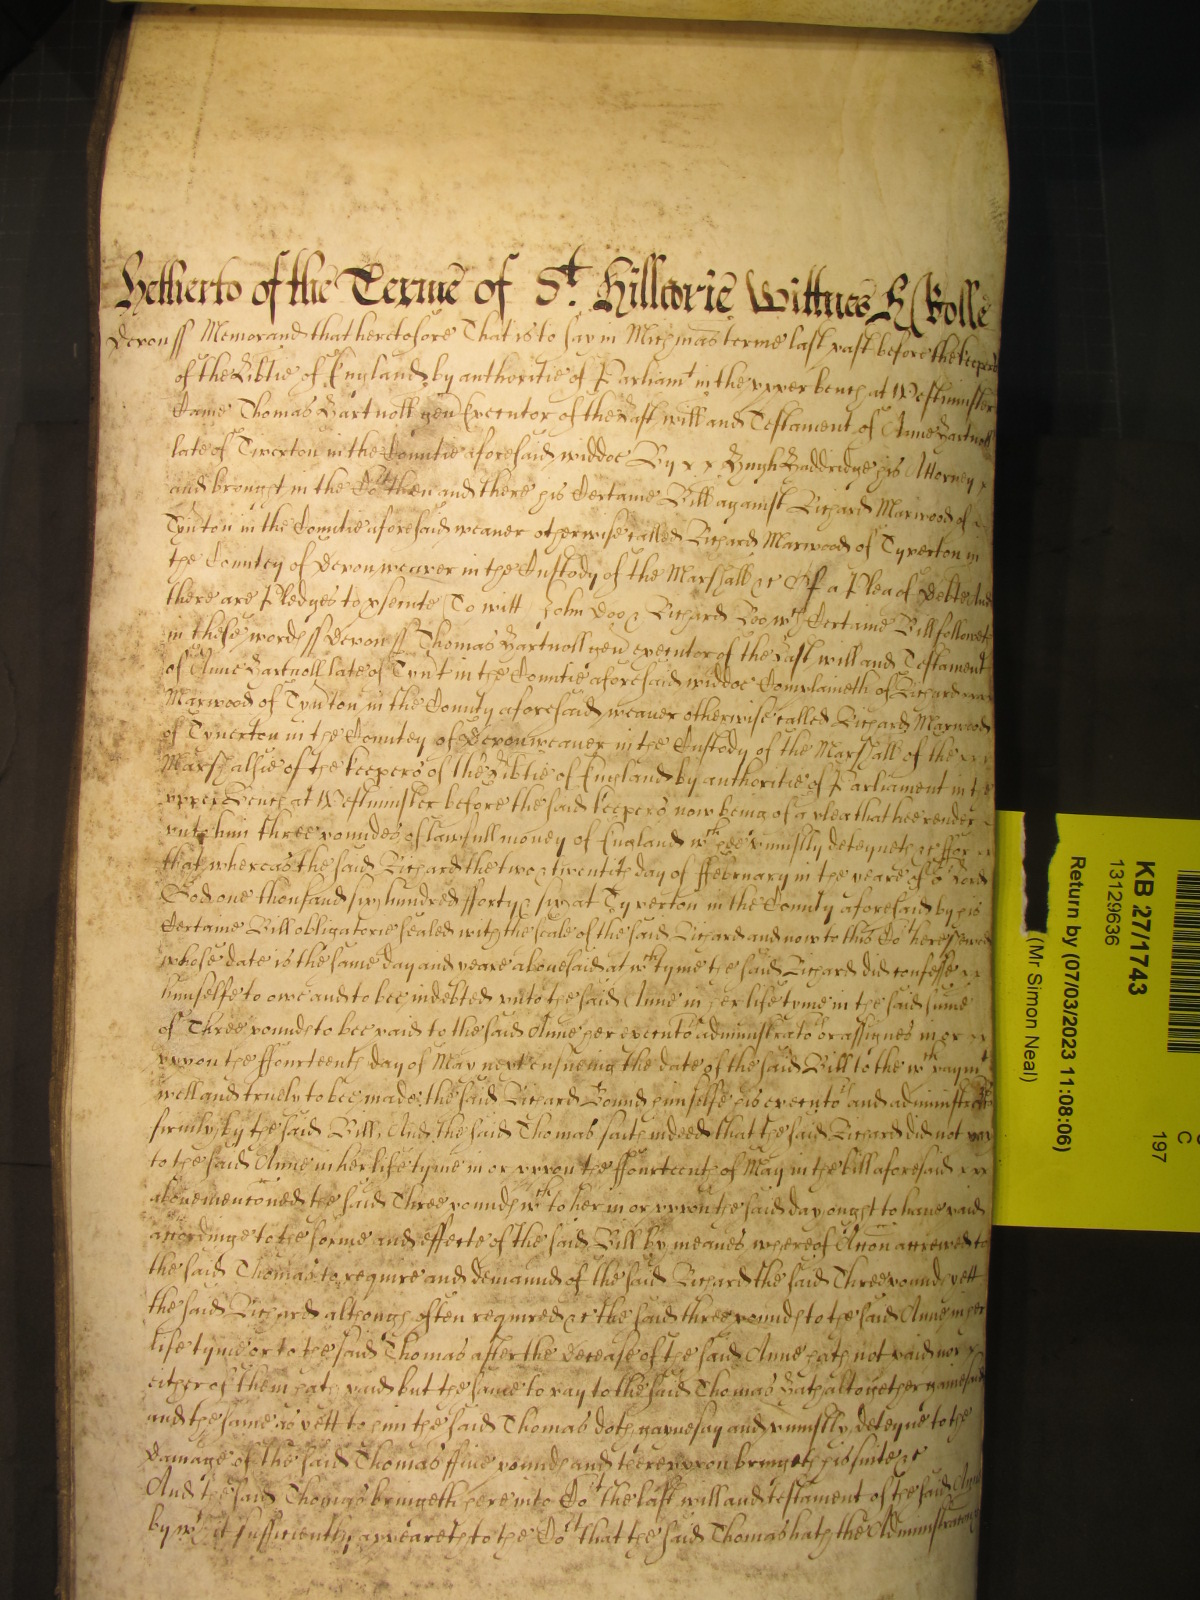 Hetherto of the Terme of St. Hillarie Wittnes H Rolle
Devon ss Memorand that heretofore That is to say in Michmas terme last past before the keepers
of the Libtie of England by authoritie of Parliamt in the upper bench at Westminster
Came Thomas Hartnoll gen Executor of the Last will and Testament of Anne Hartnoll
late of Tiverton in the Countie aforesaid widdoe By Hugh Baddridge his Attorney
and brought in the Cot then and there his Certaine Bill against Richard Marwood of
Tyvton in the Countie aforesaid weaver otherwise called Richard Marwood of Tyverton in
the Countey of Devon weaver in the Custody of the Marshall &c Of a Plea of Debte And
there are Pledges to psecute To witt John Doo & Richard Roo wch Certaine Bill followeth
in these words ss Devon ss Thomas Hartnoll gen executor of the Last will and Testament
of Anne Hartnoll late of Tyvt in the Countie aforesaid widdoe Complaineth of Richard
Marwood of Tyvton in the County aforesaid weaver otherwise called Richard Marwood
of Tyverton in the Countey of Devon weaver in the Custody of the Marshall of the
Marshalsie of the keepers of the Libtie of England by authoritie of Parliament in the
upper Bench at Westminster before the said keepers now being of a plea that hee render
unto him three poundes of lawfull money of England wch hee uniustly deteyneth &c ffor
that whereas the said Richard the two & twentith day of ffebruary in the yeare of or Lord
God one thousand six hundred fforty & six at Tyverton in the County aforesaid by his
Certaine Bill obligatorie sealed with the seale of the said Richard and now to this Cot here shewed
whose date is the same day and yeare abovesaid at wch tyme the said Richard did confesse
himselfe to owe and to bee indebted unto the said Anne in her life tyme in the said sume
of Three pounds to bee paid to the said Anne her executors administrators or assignes in or
uppon the ffourteenth day of May next ensueing the date of the said Bill to the wch paymt
well and truely to bee made the said Richard Bound himselfe his executors and administrators
firmly by the said Bill, And the said Thomas saith indeed that the said Richard did not pay
to the said Anne in her life tyme in or uppon the ffourteenth of May in the bill aforesaid
abovementioned the said Three pounds wch to her in or uppon the said day ought to have paid
accordinge to the forme and effecte of the said Bill by meanes whereof Accon accrewed to
the said Thomas to require and demaund of the said Richard the said Three pounds yett
the said Richard although often required &c the said three pounds to the said Anne in her
life tyme or to the said Thomas after the decease of the said Anne hath not paid nor
either of them hath paid but the same to pay to the said Thomas hath altogether gainesaid
and the same as yett to him the said Thomas doth gaynesay and uniustly deteyne to the
damage of the said Thomas ffive pounds and thereuppon bringeth his suite &c
And the said Thomas bringeth here into Cot the last will and testament of the said Anne
by wch it sufficiently appeareth to the Cot that the said Thomas hath the Administration
KB 27/1743
13129636
Return by (07/03/2023 11:08:06)
(Mr Simon Neal)
C
197